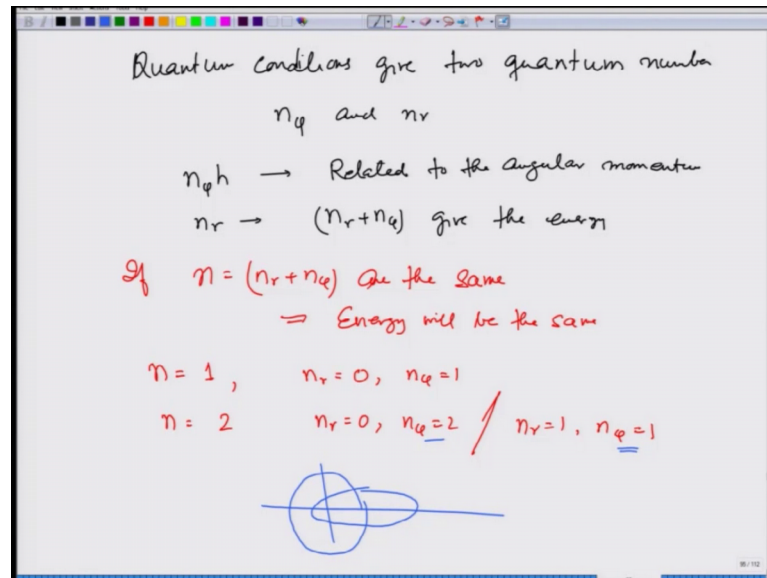 Quantum conditions give two quantum number
nφ and nr
nφh → Related to the angular momentum
nr → (nr+nφ) give the energy
If n = (nr+nφ) are the same
⇒ Energy will be the same
n = 1, nr = 0, nφ = 1
n = 2 nr = 0, nφ = 2 / nr = 1, nφ = 1